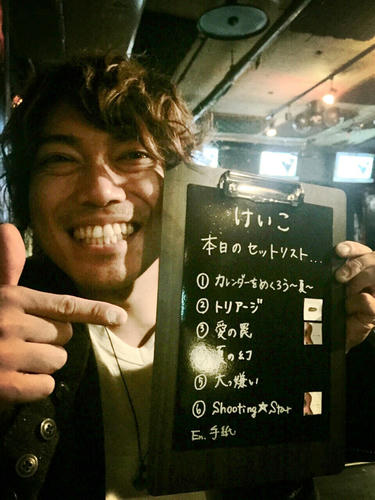 けいこ
本日のセットリスト...
① カレンダーをめくろう〜夏〜
② トリアージ
③ 愛の罠
の幻
⑤ 大っ嫌い
⑥ Shooting★Star
En. 手紙